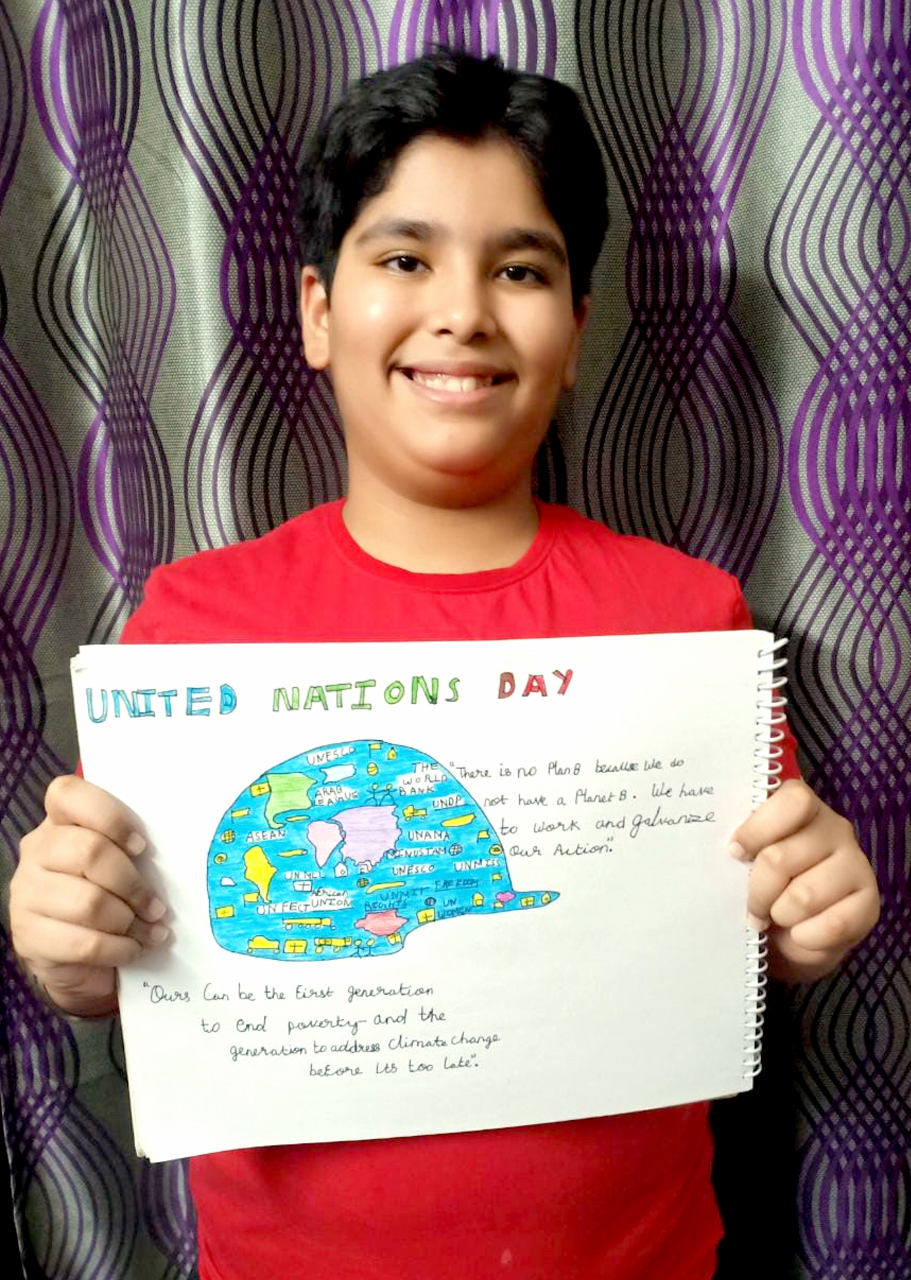 UNITED NATIONS DAY
UNESCO
THE WORLD BANK
ARAB LEAGUE
UNDP
ASEAN
UNAMA
UNESCO
UNMISS
UNMIT
FREEDOM
African UNION
RIGHTS
UN WOMEN
"There is no PlanB because we do
not have a Planet B. We have
to work and galvanize
Our Action."
"Ours Can be the first generation
to end poverty and the
generation to address Climate change
before its too late".